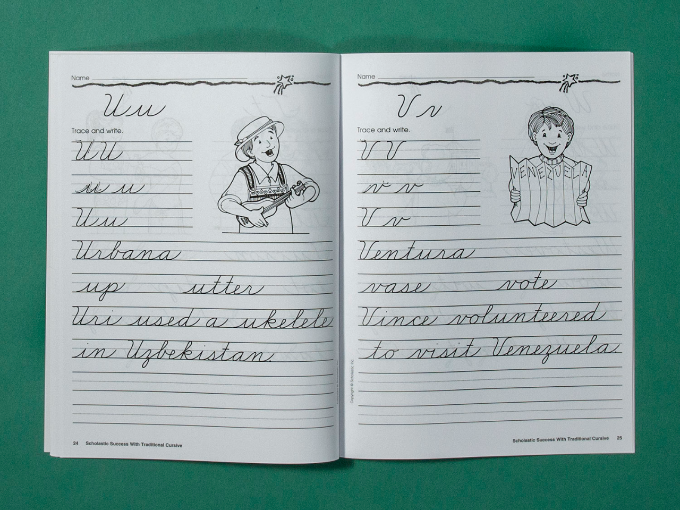 Name
Uu
Trace and write.
UU
u u
Uu
Urbana
up utter
Uri used a ukelele
in Uzbekistan
24 Scholastic Success With Traditional Cursive
Name
Vv
Trace and write.
VV
v v
V v
VENEZUELA
Ventura
vase vote
Vince volunteered
to visit Venezuela
Copyright © Scholastic Inc.
Scholastic Success With Traditional Cursive 25